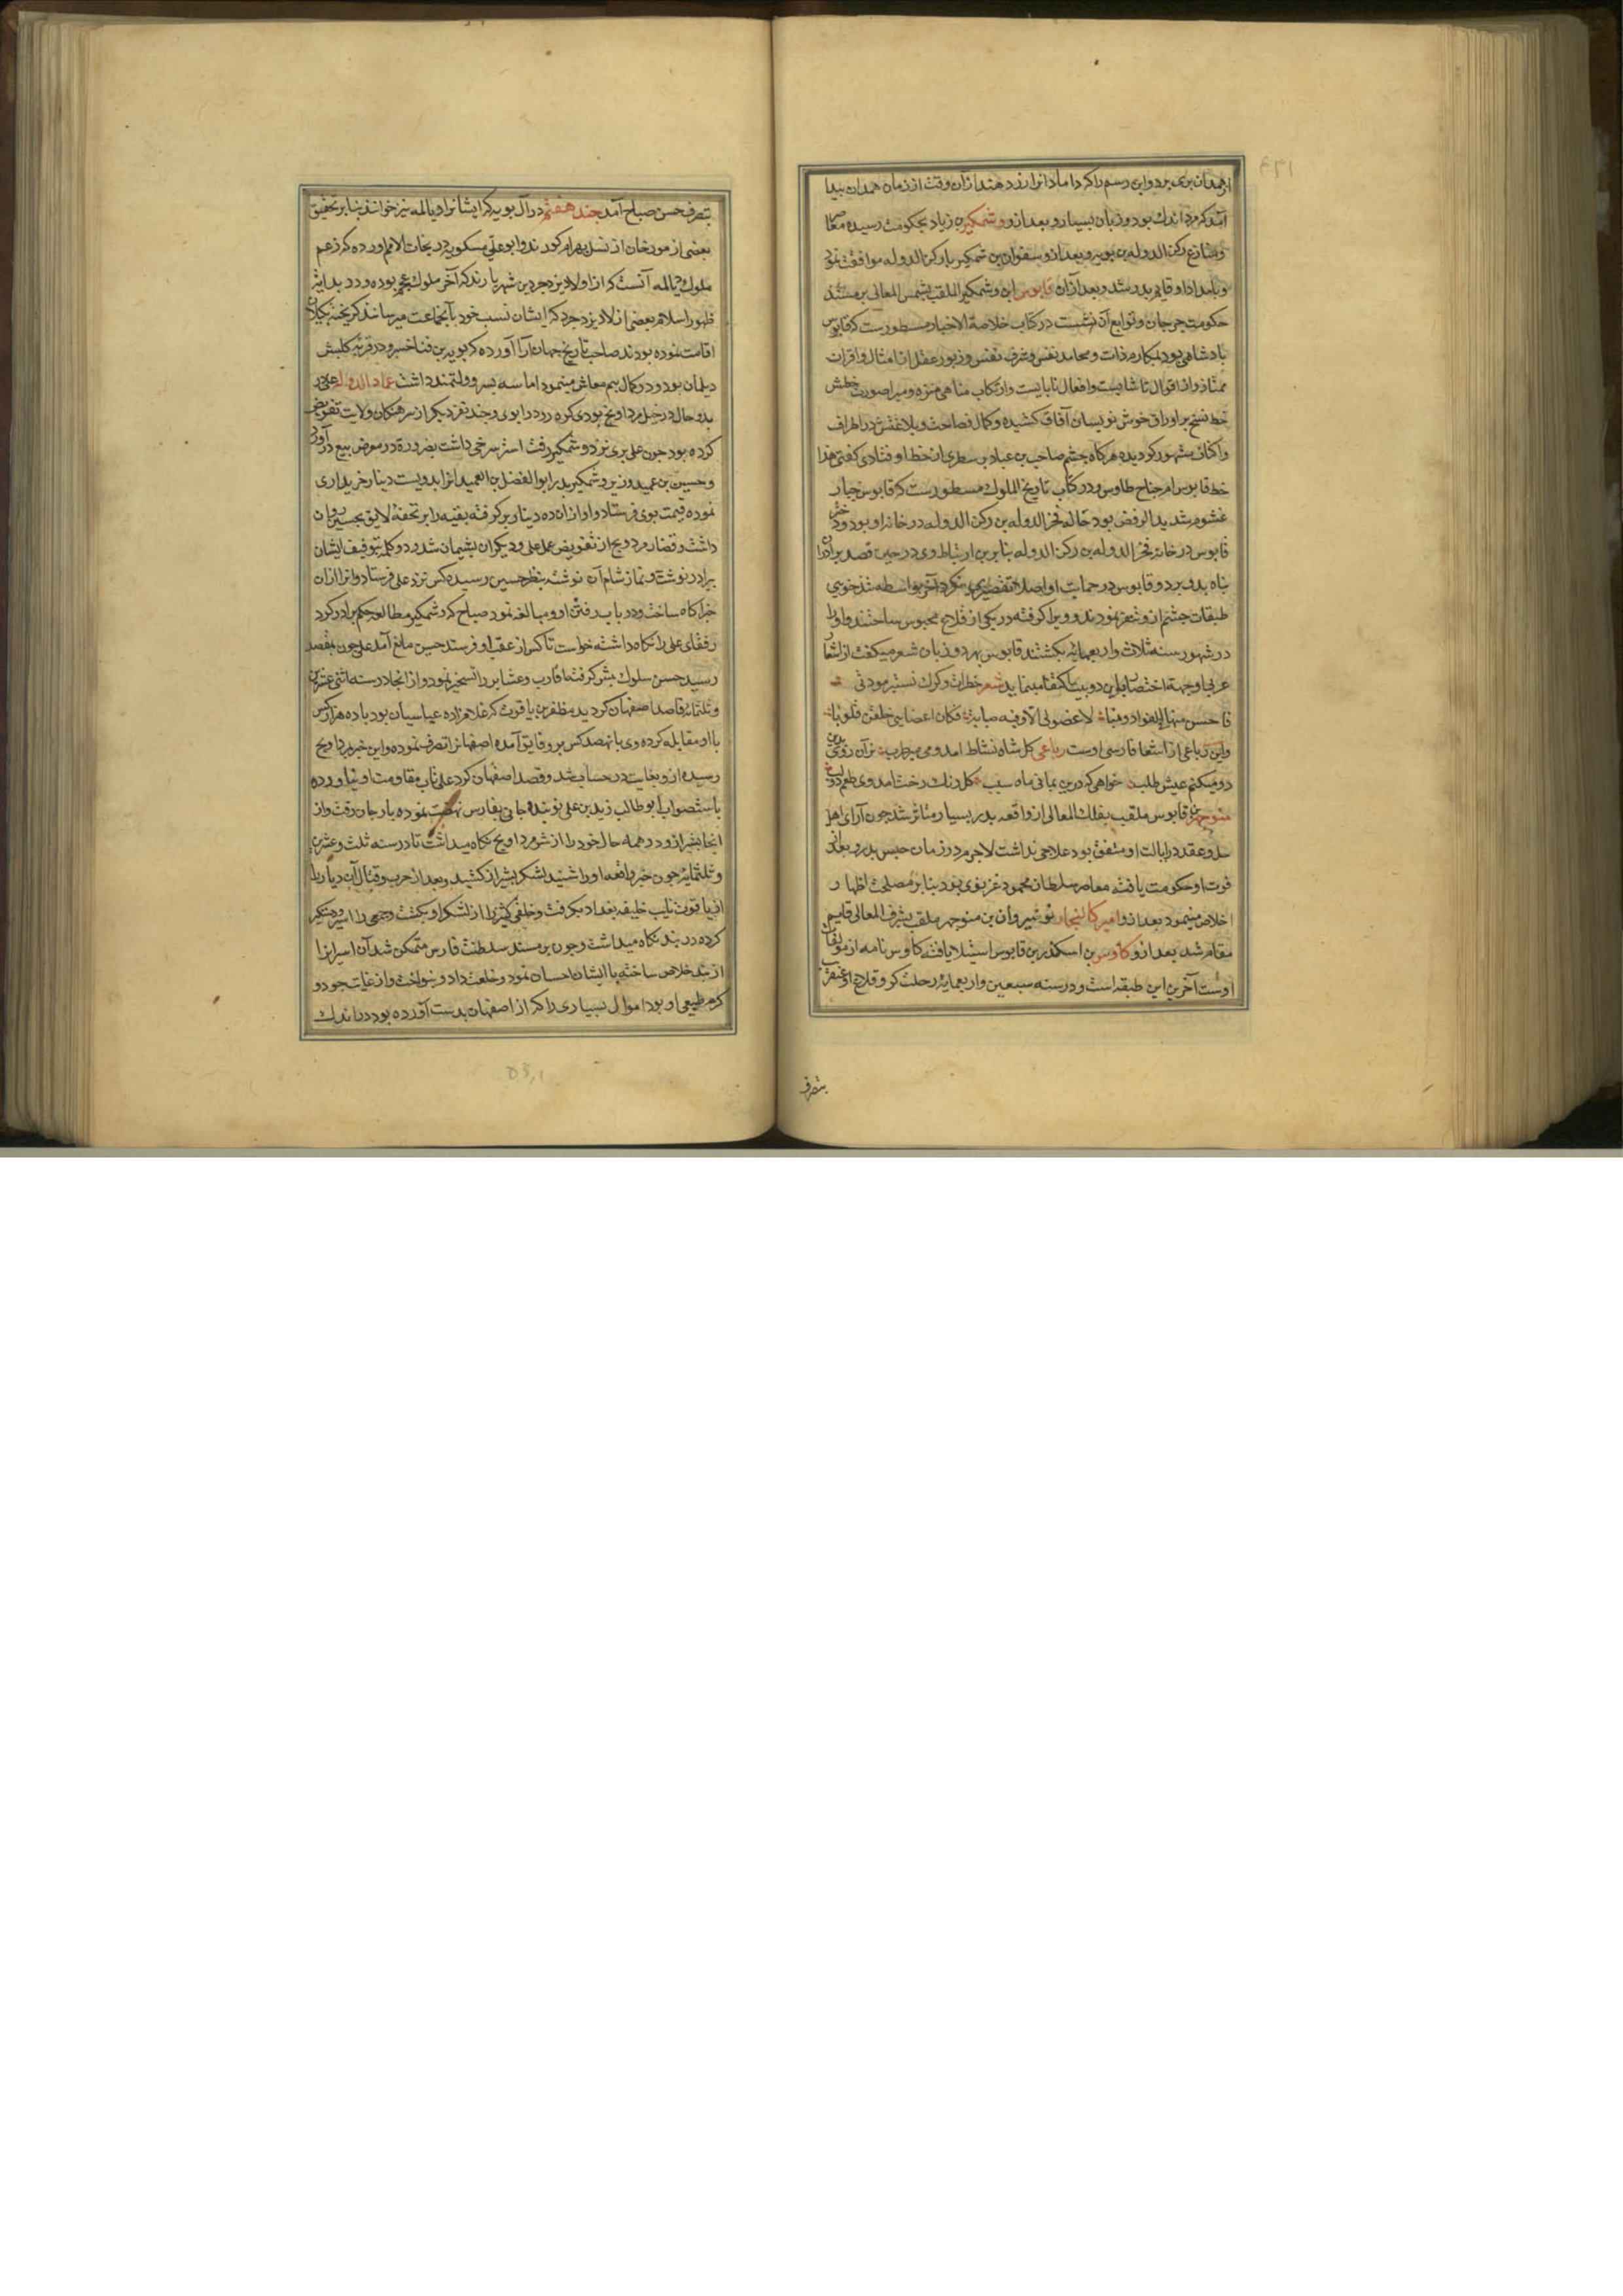 ازهمدان بری برد و این رسم را که داماد انرا رزد هند از آن وقت از زمان همدان پیدا
آمد که مرد اندك بود و زنان بسیار و بعد ازو وشمکیر بن زیاد بحکومت رسیده معاصر
و منازع رکن الدوله بن بویه و بعد ازو بیستون بن شمکیر با رکن الدوله موافقت نمود
و بامداد او قایم پدر شد و بعد از آن قابوس ابن وشمکیر الملقب بشمس المعالی بر مسند
حکومت جرجان و توابع آن نشست در کتاب خلاصة الاخبار مسطورست که قابوس
پادشاهی بود بمکارم ذات و محامد نفس و شرف نفس و زیور عقل از امثال و اقران
ممتاز و از اقوال ناشایست و افعال نابایست و ارتکاب مناهی منزه و مبرا صورت خطش
خط نسخ بر اوراق خوش نویسان آفاق کشیده و کمال فصاحت و بلاغتش در اطراف
واکناف مشهور کردیده هرکاه چشم صاحب بن عباد بر سطری از خط او فتادی کفتی هذا
خط قابوس ام جناح طاوس و در کتاب تاریخ الملوك مسطورست که قابوس جبار
غشوم شدید الرفض بود خاله فخر الدوله بن رکن الدوله در خانه او بود و دختر
قابوس در خانه فخر الدوله بن رکن الدوله بنا برین ارتباط وی در حین قصد برادران
پناه بدو برد و قابوس در حمایت او اصلا تقصیری نکرد آخر بواسطه تندخویی
طبقات حشم ازو تنفر نمودند و ویرا کرفته در یکی از قلاع محبوس ساختند و او را
در شهور سنه ثلاث و اربعمایه بکشتند قابوس بهر دو زبان شعر میکفت از اشعار
عربی او جهة اختصار باین دو بیت اکتفا مینماید شعر خطرات ذکرك تستثیر مودتی
فاحس منها فی الفواد دبیبا لا عضو لی الا و فیه صبابة فکان اعضایی خلقن قلوبا
و این رباعی از اشعار فارسی اوست رباعی کل شاه نشاط امد و می میر طرب زان روی بدین
دو میکنم عیش طلب خواهی که درین بدانی ماه سبب کل رنك رخت امد و می طعم دو لب
منوچهر بن قابوس ملقب بفلك المعالی از واقعه پدر بسیار متاثر شد چون آرای اهل
حل و عقد در ایالت او متفق بود علاجی نداشت لاجرم در زمان حبس پدر و بعد از
فوت او حکومت یافته معاصر سلطان محمود غزنوی بود بنابر مصلحت اظهار
اخلاص مینمود بعد ازو امیر کالنجار نوشیروان بن منوچهر ملقب بشرف المعالی قایم
مقام شد بعد ازو کاوس بن اسکندر بن قابوس استیلا یافته کاوس نامه از مولفات
اوست آخرین این طبقه است و در سنه سبعین و اربعمایه رحلت کرد و قلاع او عنقریب
بتصرف
بتصرف حسن صباح آمد جند هفتم در آل بویه که ایشانرا دیالمه نیز خوانند بنابر تحقیق
بعضی از مورخان از نسل بهرام کورند و ابو علی مسکویه در تجارت الامم اورده که زعم
ملوك دیالمه آنست که از اولاد یزدجرد بن شهریارند که آخر ملوك عجم بوده و در بدایت
ظهور اسلام بعضی از اولاد یزدجرد که ایشان نسب خود بآنجماعت میرسانند کریخته بکیلان
اقامت نموده بودند صاحب تاریخ جهان آرا آورده که بویه بن فنا خسرو در قریه کلیش
دیلمان بود و در کمال بیم معاش مینمود اما سه پسر دولتمند داشت عماد الدوله علی در
بدو حال در خیل مرداویج بودی کره رود را بوی و چند نفر دیکر از سرهنکان ولایت تفویض
کرده بود چون علی بری نزد وشمکیر رفت استر سرخی داشت بضرورة در معرض بیع درآورد
و حسین بن عمید وزیر وشمکیر پدر ابو الفضل بن العمید انرا بدویست دینار خریداری
نموده قیمت بوی فرستاد و او ازان ده دینار برکرفته بقیه را بر تحفهٔ لایق بحسین روان
داشت و قضا را مردویج از تفویض عمل علی و دیکران پشیمان شد و دو کلمه بتوقیف ایشان
برادر نوشت و نماز شام آن نوشته بنظر حسین رسیده کس نزد علی فرستاد و انرا ازان
خبر آکاه ساخت و در باب رفتن او مبالغه نمود صباح که وشمکیر مطالعه حکم برادر کرد
رفقای علی را نکاه داشته خواست تا کس از عقب او فرستد حسین مانع آمد علی چون بمقصد
رسید حسن سلوك پیش کرفته اقارب و عشایر را تسخیر نمود و از انجا در سنه اثنی عشرین
و ثلثمائه قاصد اصفهان کردید مظفر بن یاقوت که غلامزاده عباسیان بود با ده هزار کس
با او مقابله کرده وی با نهصد کس برو فایق آمده اصفهانرا تصرف نموده و این خبر بمرداویج
رسیده ازو بغایت در حساب شد و قصد اصفهان کرد علی تاب مقاومت او نیاورده
باستصواب ابو طالب زید بن علی نوبندجانی بفارس نهضت نموده بارجان رفت و از
انجا بشیراز و در همه حال خود را از شر مرداویج نکاه میداشت تا در سنه ثلث و عشرین
و ثلثمایه چون خبر واقعه او را شنید لشکر بشیراز کشید و بعد از حرب و قتال آن دیار را
از یاقوت نایب خلیفه بغداد بکرفت و خلقی کثیر را از لشکر او بکشت و جمعی را اسیر و دستکیر
کرده در بند نکاه میداشت و چون بر مسند سلطنت فارس متمکن شد آن اسیرانرا
از بند خلاص ساخته با ایشان احسان نمود و خلعت داد و بنواخت و از غایت جود و
کرم طبیعی او بود اموال بسیاری را که از اصفهان بدست آورده بود در اندك